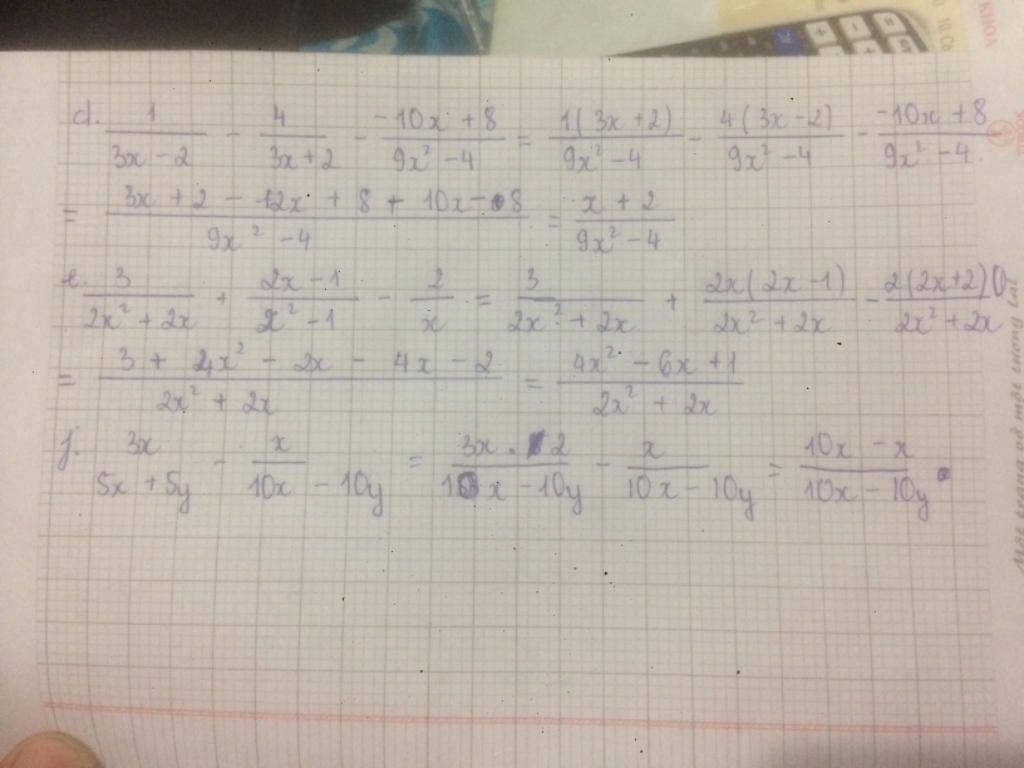 KHOA
d. 1/(3x - 2) - 4/(3x + 2) - (-10x + 8)/(9x² - 4) = 1(3x + 2)/(9x² - 4) - 4(3x - 2)/(9x² - 4) - (-10x + 8)/(9x² - 4)
= (3x + 2 - 12x + 8 + 10x - 8)/(9x² - 4) = (x + 2)/(9x² - 4)
e. 3/(2x² + 2x) + (2x - 1)/(x² - 1) - 2/x = 3/(2x² + 2x) + 2x(2x - 1)/(2x² + 2x) - 2(2x + 2)/(2x² + 2x)
= (3 + 4x² - 2x - 4x - 2)/(2x² + 2x) = (4x² - 6x + 1)/(2x² + 2x)
f. 3x/(5x + 5y) - x/(10x - 10y) = 3x . 2/(10x - 10y) - x/(10x - 10y) = (10x - x)/(10x - 10y)